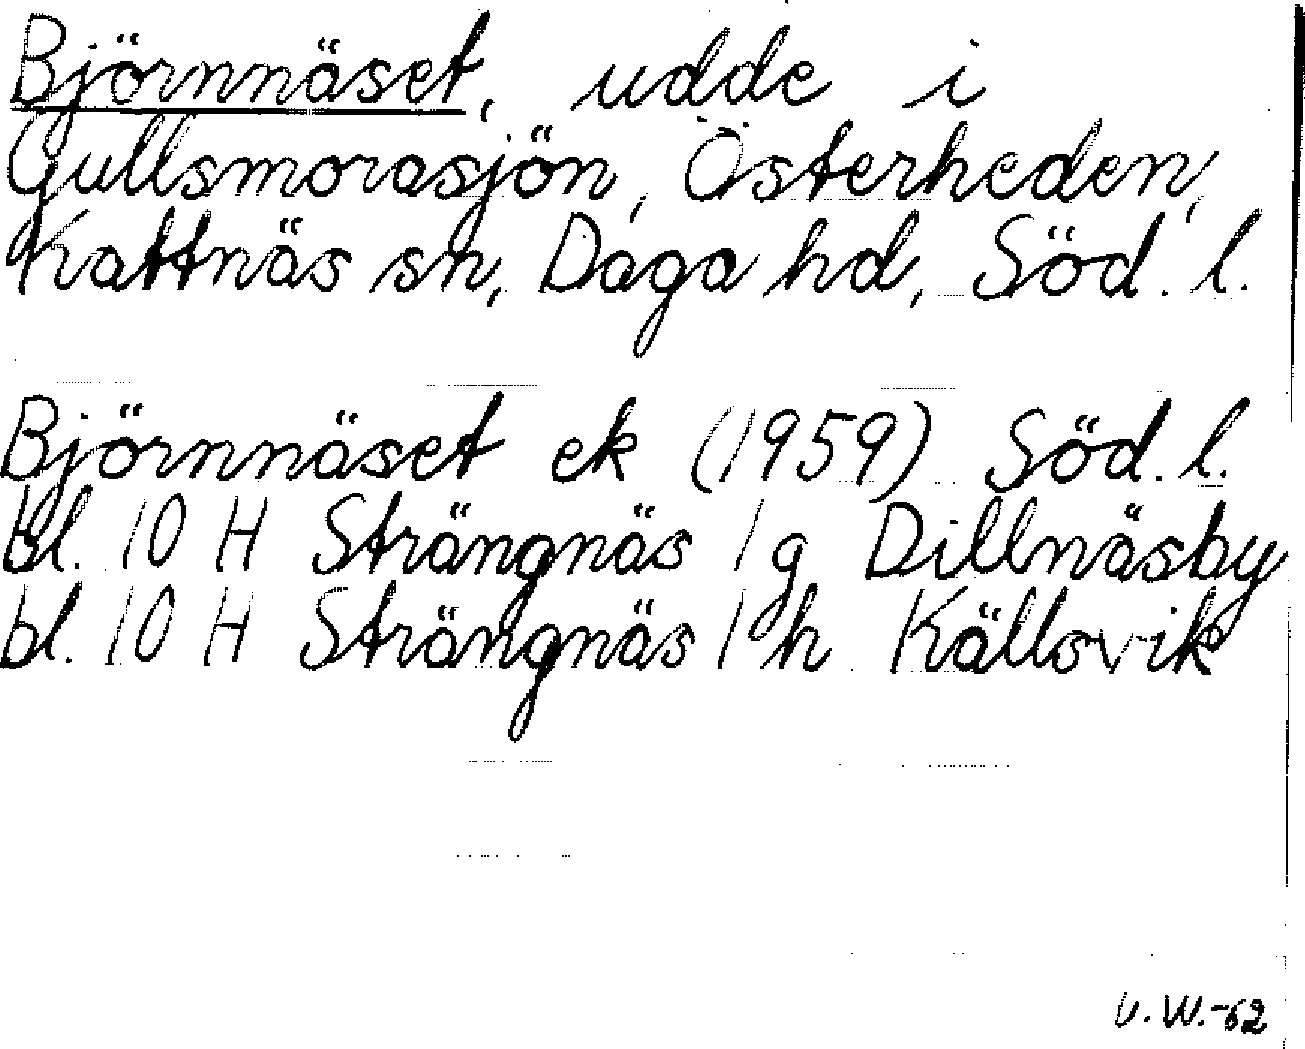 Björnnäset, udde i
Gullsmorasjön, Österheden,
Kattnäs sn, Daga hd, Söd. l.
Björnnäset ek (1959) Söd. l.
bl. 10 H Strängnäs 1 g Dillnäsby
bl. 10 H Strängnäs 1 h Källsvik
U.W.-62